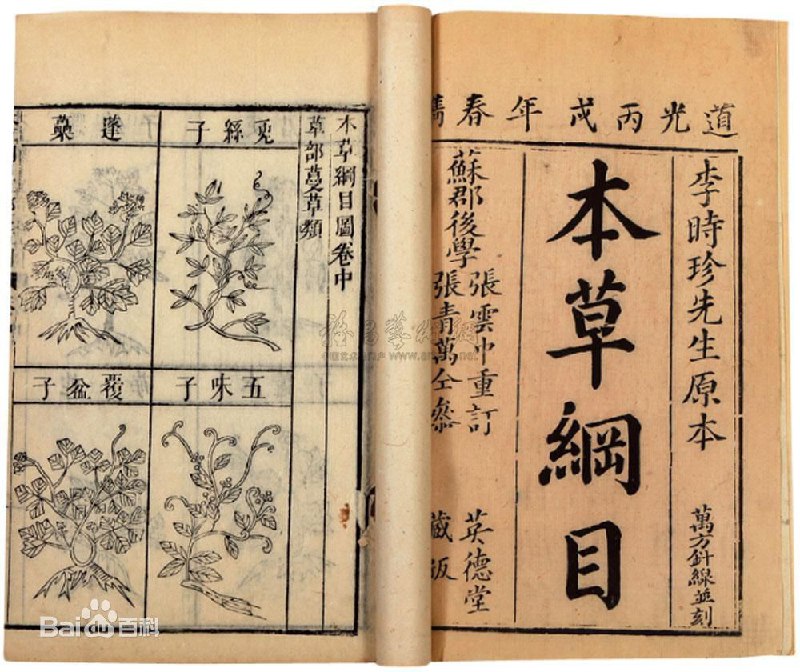 道光丙戌年春鐫
李時珍先生原本
萬方針線並刻
本草綱目
蘇郡後學
張雲中重訂
張青萬仝參
英德堂
藏板
本草綱目圖卷中
草部蔓草類
兎絲子
蓬蘽
五味子
覆盆子
Baidu百科